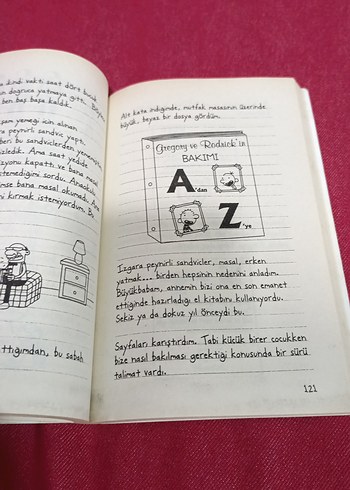 ikindi vakti saat dört buçuk
doğruca yatmaya gitti.
ben baş başa kaldık.
şam yemeği için alınan
peynirli sandviç yaptı.
bu sandviçlerden yememiştim
izledik. Ama saat yedide
kapattı ve bana masal
istemediğimi sordu. Anaokulu
kimse bana masal okumadı. Ama
kırmak istemiyordum. Bu
ttığımdan, bu sabah
Alt kata indiğimde, mutfak masasının üzerinde
büyük, beyaz bir dosya gördüm.
Gregory ve Rodrick'in
BAKIMI
A'dan
Z'ye
Izgara peynirli sandviçler, masal, erken
yatmak... birden hepsinin nedenini anladım.
Büyükbabam, annemin bizi ona en son emanet
ettiğinde hazırladığı el kitabını kullanıyordu.
Sekiz ya da dokuz yıl önceydi bu.
Sayfaları karıştırdım. Tabi küçük birer çocukken
bize nasıl bakılması gerektiği konusunda bir sürü
talimat vardı.
121